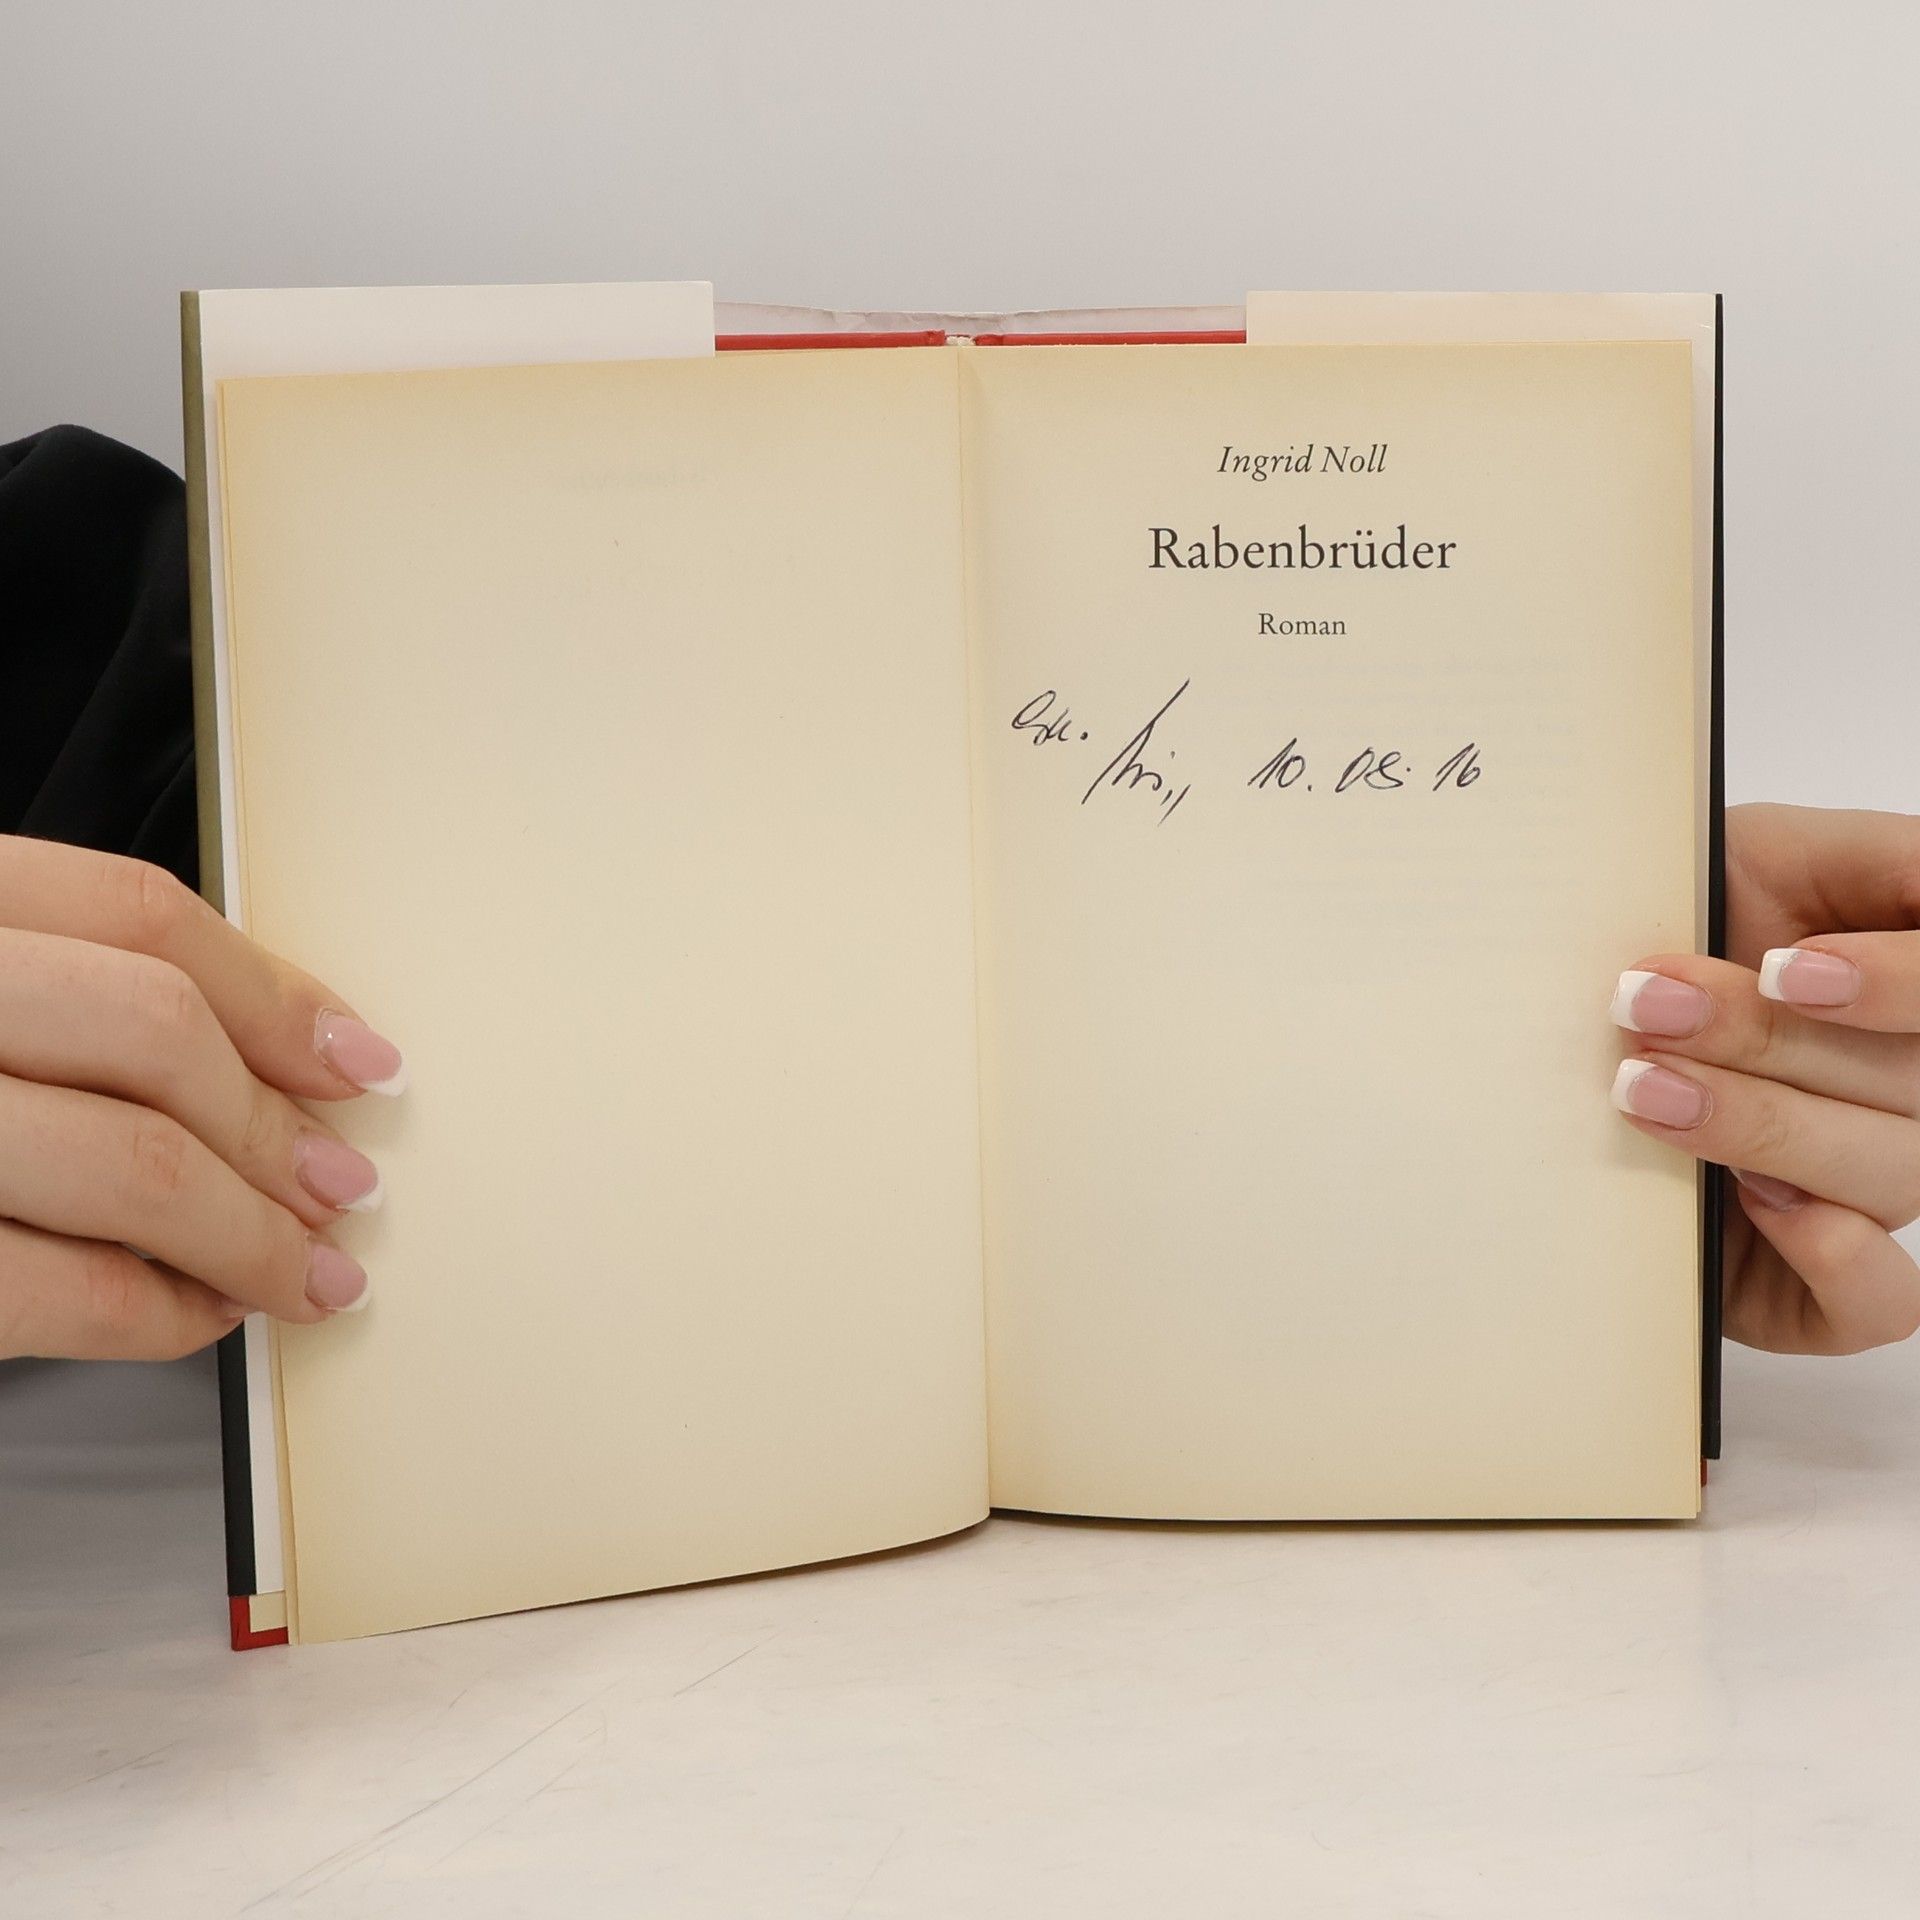 Ingrid Noll
Rabenbrüder
Roman
10. 08. 16